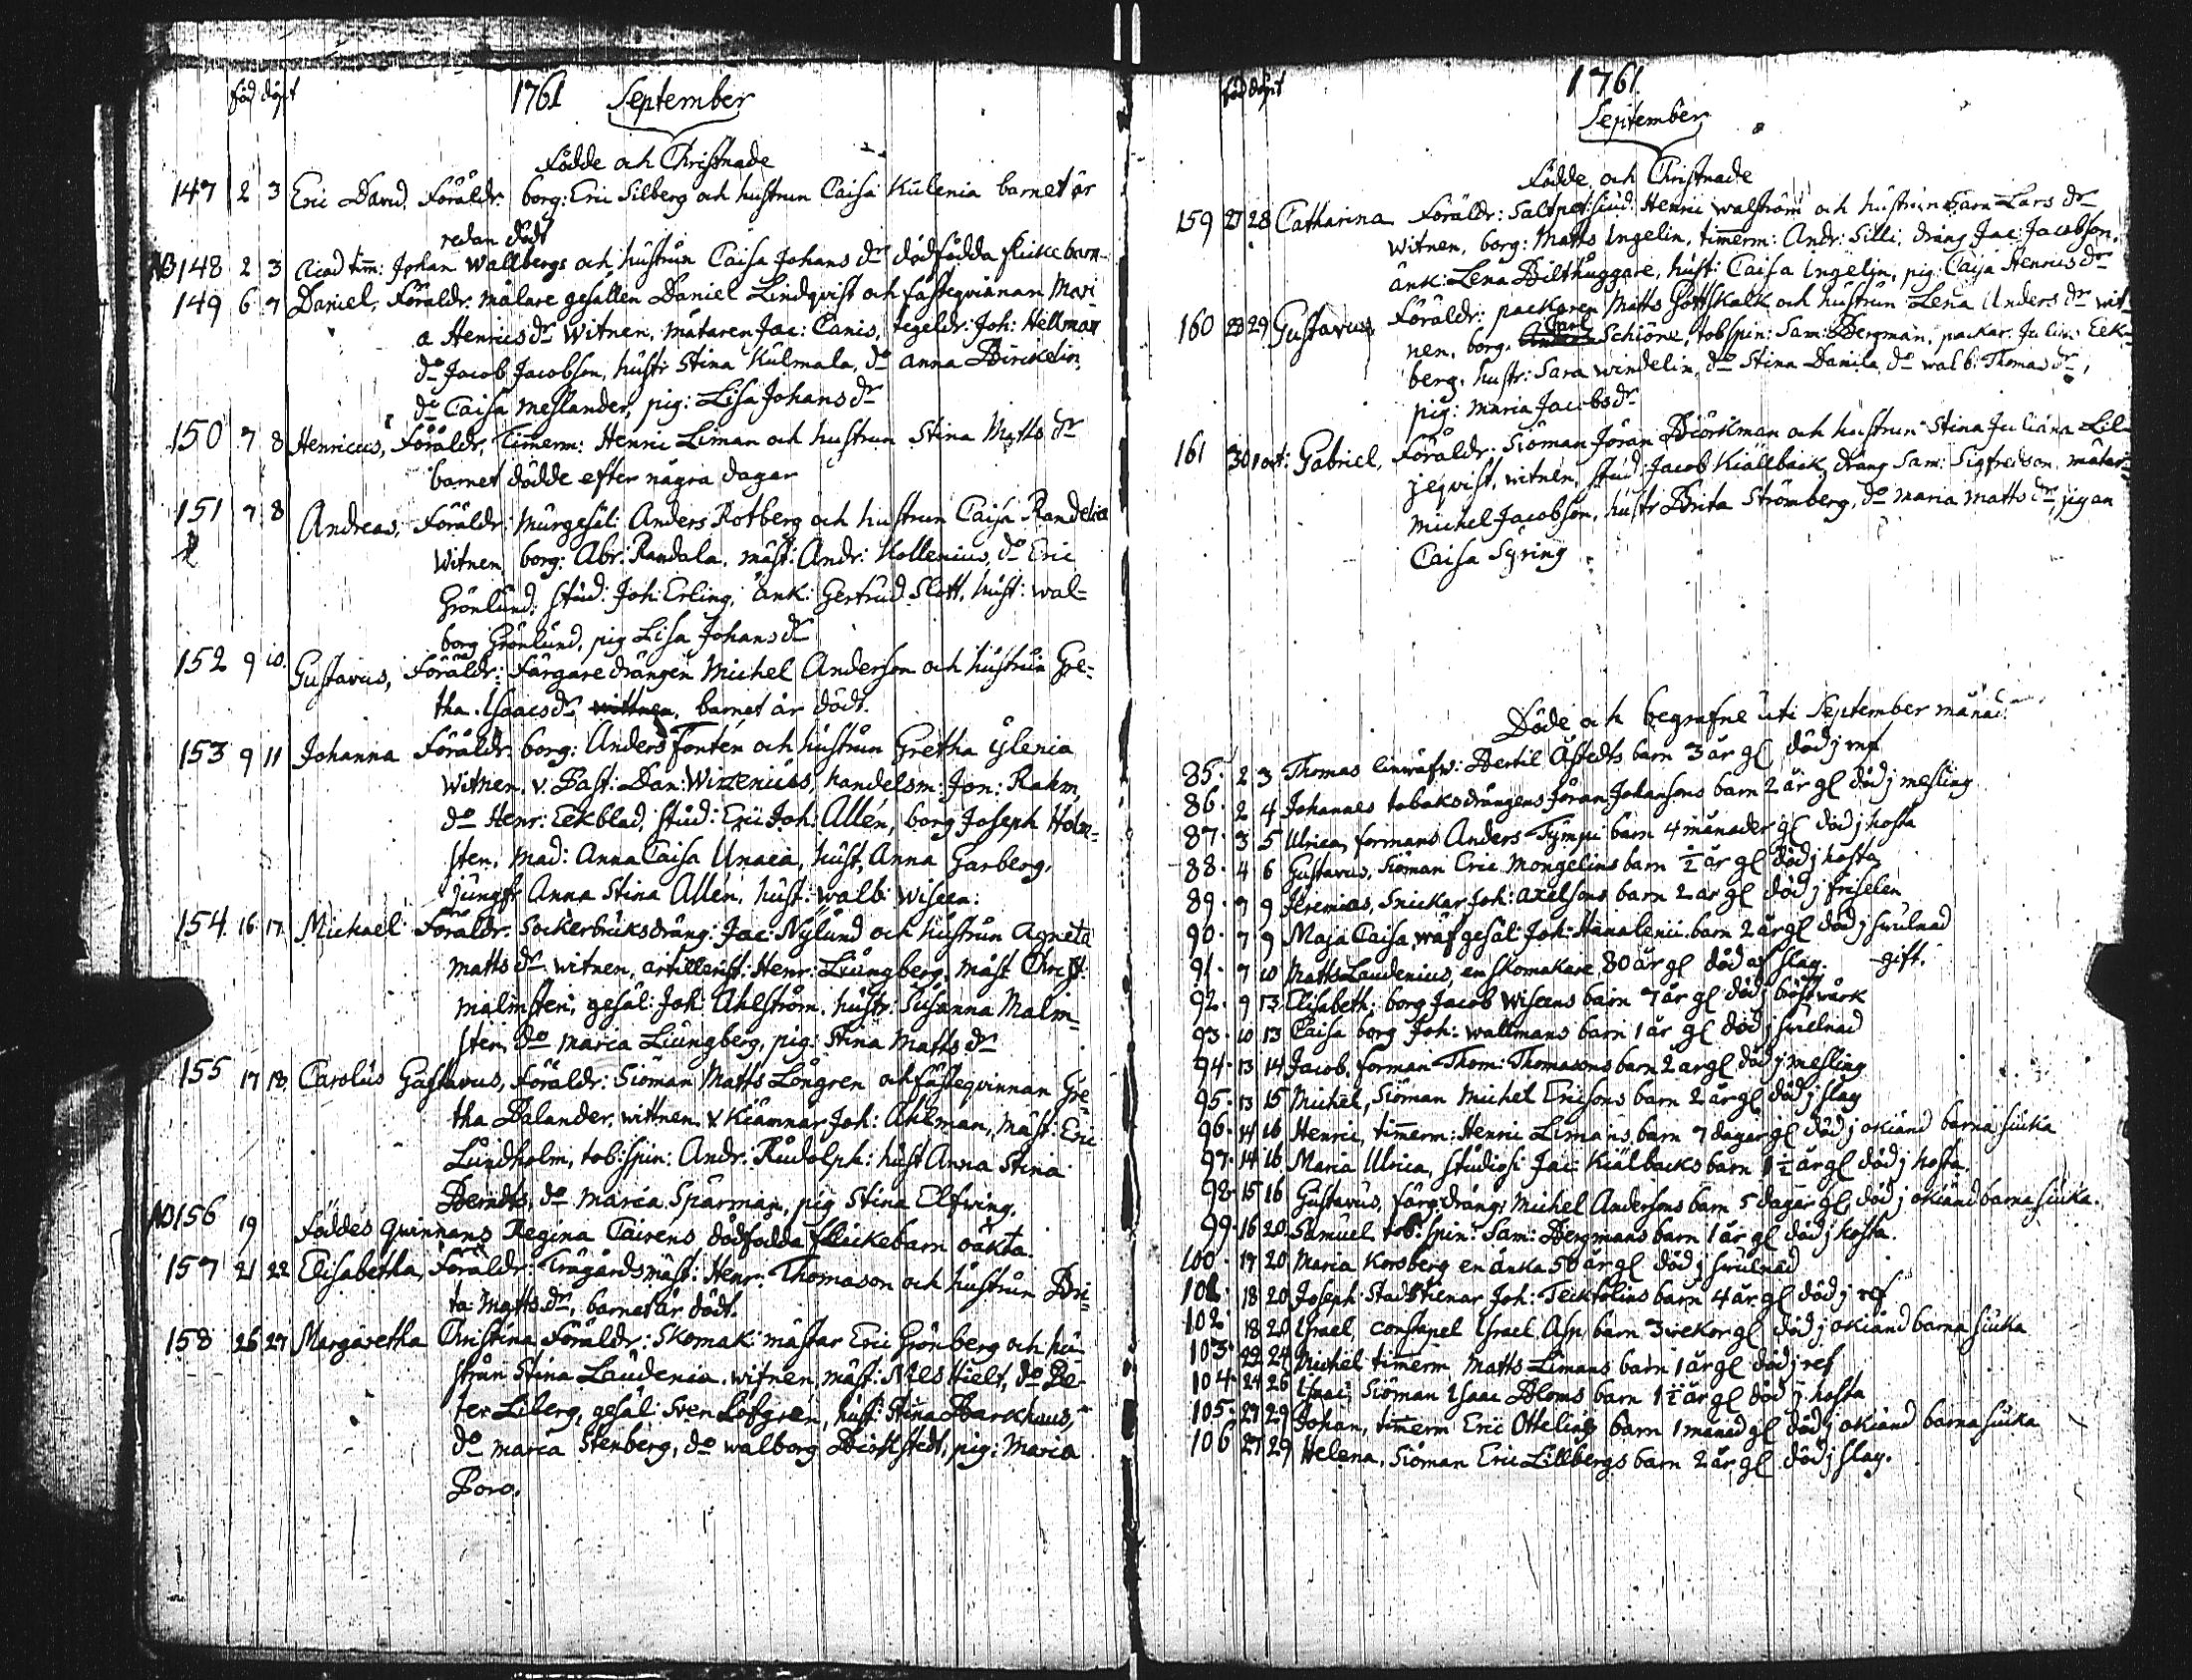 föd döpt
1761 September
Födde och Christnade
147 2 3 Eric David. Föräldr. borg: Eric Silberg och hustrun Caisa Kulenia barnet är
redan dödt
NB 148 2 3 Acad timm: Johan Wallbergs och hustrun Caisa Johans dr dödfödda flickebarn
149 6 7 Daniel, Föräldr. målare gesällen Daniel Lindqvist och fästeqvinnan Mari-
a Henricsdr Witnen. mätaren Jac: Canis, tegeldr: Joh: Hellman
do Jacob Jacobson, hustr Stina Kulmala, do anna Bircklin,
do Caisa Meslander, pig: Lisa Johansdr
150 7 8 Henricus, Föräldr, Timerm: Henric Liman och hustrun Stina Matts dr
barnet dödde efter några dagar
151 7 8 Andreas, Föräldr. Murgesäl: Anders Rotberg och hustrun Caisa Randelia
Witnen borg: Abr: Randala, mäst: Andr: Kollenius, do Eric
Grönlund, stud: Joh: Erling, änk: Gertrud Slott, hust: wal=
borg Grönlund, pig Lisa Johans dr
152 9 10. Gustavus, Föräldr: Färgare drängen Michel Anderson och hustrun Gre=
tha Isaacsdr, wittnen, barnet är dödt.
153 9 11 Johanna Föräldr. borg: Anders Fontén och hustrun Gretha Ylenia
Witnen. v. Past: Dan: Wirzenius, handelsm: Jon: Rahm,
do Henr: Eekblad, stud: Eric Joh: Allén, borg Joseph Holm=
sten, Mad: Anna Caisa Unaea, hust, Anna Garberg,
jungfr Anna Stina Allén, hust: walb: Wiseen:
154 16 17. Michael Föräldr. Sockerbruksdräng: Jac: Nylund och hustrun Agneta
matts dr witnen, artillerist: Henr: Liungberg, mäst Christ:
malmsten, gesäl: Joh: Ahlström, hustr: Susanna Malm=
sten, do maria Liungberg, pig: Stina Matts dr
155 17 18. Carolus Gustavus, Föräldr: Siöman Matts Longren och fästeqvinnan Gre=
tha Dalander, wittnen v Kiämnar Joh: Ahlman, Mäst: Eric
Lundholm, tob: spin: Andr: Rudolph: hust Anna Stina
Berndts, do maria Spårman, pig Stina Elfwing.
NB 156 19 Föddes quinnans Regina Cairens dödfödda flickebarn oäkta.
157 21 22 Elisabetha, Föräldr: Trägårdsmäst: Henr: Thomason och hustrun Bri=
ta Matts dr, barnet är dödt.
158 26 27 Margaretha Christina Föräldr: Skomak: mästar Eric Grönberg och hu=
strun Stina Laudenia. witnen mäst: Nils Hielt, do Pe=
ter Liberg, gesäl: Sven Lofgren, hust: Stina Barckhuus,
do maria Stenberg, do walborg Biörkstedt, pig: Maria
Poro.
föd döpt
1761.
September
Födde och Christnade
159 27 28 Catharina Föräldr: Saltpet: siud: Henric walström och hustrun Sara Lars dr
witnen, borg: Matts Ingelin, timerm: Andr: Silli, dräng Jac: Jacobson,
änk: Lena Bilthuggare, hust: Caisa Ingelin, pig: Caisa Henrics dr
160 28 29 Gustavus Föräldr: packaren Matts Gottskalk och hustrun Lena Anders dr wit=
nen, borg. Carl Schiöne, tobspin: Sam: Bergman, packar. Eek=
berg, hustr: Sara windelin, do Stina Danila, do walb: Thomas dr,
pig: maria Jacobs dr
161 30 1 oct: Gabriel, Föräldr: Siöman Jöran Biörkman och hustrun Stina Juliana Lil=
jeqvist, witnen, stud: Jacob Kiällbäck, dräng Sam: Sigfredson, mätar
Michel Jacobson, hustr Brita Strömberg, do maria matts dr, pigan
Caisa Syring
Döde och begrafne uti September månad
85. 2 3 Thomas linwäfw: Bertil Åstedts barn 3 år gl död j ref
86. 2 4 Johannes tobaksdrängens Jöran Johansons barn 2 år gl död j mesling
87. 3 5 Ulrica, formans Anders Tympi barn 4 månader gl död j hosta
88. 4 6 Gustavus, Siöman Eric Mongelins barn ½ år gl död j hosta
89. 7 9 Jeremias, Snickar Joh: Axelsons barn 2 år gl död j friselen
90. 7 9 Maja Caisa, wäfgesäl: Joh: Hanalenii barn 2 år gl död j swulnad
91. 7 10 Matts Laudenius, en skomakare 80 år gl död af slag. gift.
92. 9 13 Elisabeth, borg Jacob Wiseens barn 7 år gl död j bröstwärk
93. 10 13 Caisa borg Joh: wallmans barn 1 år gl död j swulnad
94. 13 14 Jacob, forman Thom: Thomasons barn 2 år gl död j mesling
95. 13 15 Michel, Siöman Michel Ericsons barn 2 år gl död j slag
96. 14 16 Henric, timerm: Henric Limans barn 7 dagar gl död j okiänd barna siuka
97. 14 16 Maria Ulrica, studiosi Jac: Kiälbacks barn 1½ år gl död j hosta.
98 15 16 Gustavus, färg: dräng: Michel Andersons barn 5 dagar gl, död j okiänd barna siuka.
99. 16 20 Samuel tob: spin: Sam: Bergmans barn 1 år gl död j hosta.
100. 17 20 Maria Korsberg en änka 50 år gl död j swulnad
101. 18 20 Joseph Stadstienar Joh: Tecktolins barn 4 år gl död j ref
102 18 20 Israel, constapel Israel Asp barn 3 wekor gl död j okiänd barna siuka
103. 22 24 Michel timerm Matts Limans barn 1 år gl död j ref
104. 24 26 Isaac Siöman Isaac Bloms barn 1½ år gl död j hosta
105. 27 29 Johan, timerm Eric Ottelins barn 1 månad gl död j okiänd barna siuka
106 27 29 Helena, Siöman Eric Lillbergs barn 2 år gl död j slag.